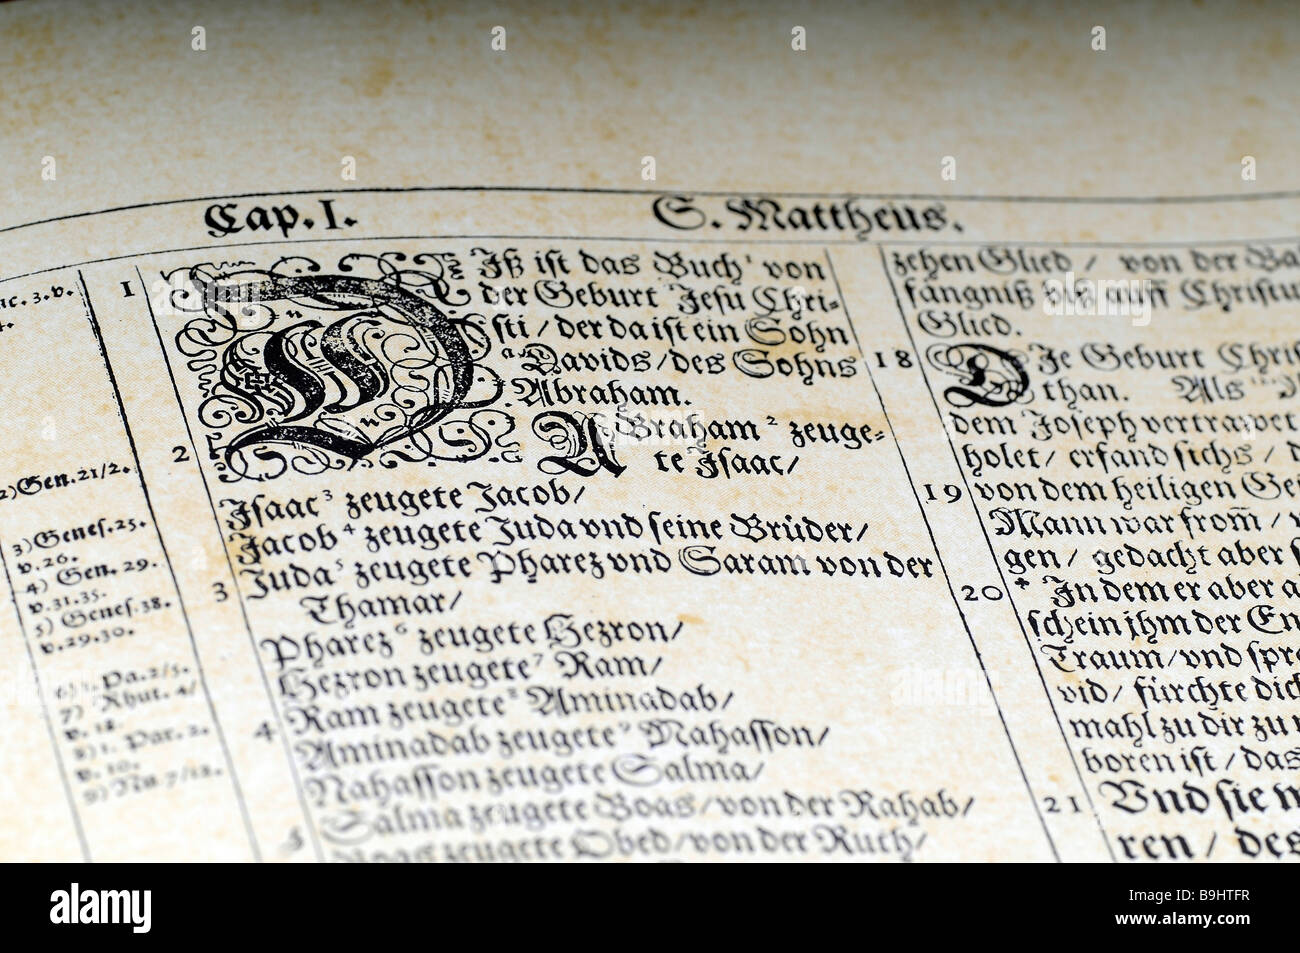 Cap. I.
S. Mattheus.
1
DIß ist das Buch¹ von
der Geburt Jesu Chri-
sti / der da ist ein Sohn
ᵃ Davids / des Sohns
Abraham.
2
ABraham² zeuge-
te Isaac /
Isaac³ zeugete Jacob /
Jacob⁴ zeugete Juda vnd seine Brüder /
3 Juda⁵ zeugete Pharez vnd Saram von der
Thamar /
Pharez⁶ zeugete Hezron /
Hezron zeugete⁷ Ram /
4 Ram zeugete⁸ Aminadab /
Aminadab zeugete⁹ Nahasson /
Nahasson zeugete Salma /
5 Salma zeugete Boas / von der Rahab /
Boas zeugete Obed / von der Ruth /
3. v.
2) Gen. 21/2.
3) Genes. 25.
v. 26.
4) Gen. 29.
v. 31. 35.
5) Genes. 38.
v. 29. 30.
6) 1. Pa. 2/5.
7) Rhut. 4/
v. 18.
8) 1. Par. 2.
v. 10.
9) Nu. 7/12.
zehen Glied / von der Ba
fängniß biß auff Christu
Glied.
18 DIe Geburt Chris
than. Als
dem Joseph vertrawet
holet / erfand sichs /
19 von dem heiligen Gei
Mann war from̃ / v
gen / gedacht aber
20 In dem er aber a
schein jhm der En
Traum / vnd spra
vid / fürchte dich
mahl zu dir zu
boren ist / das
21 Vnd sie
ren / des
alamy
Image ID: B9HTFR
www.alamy.com